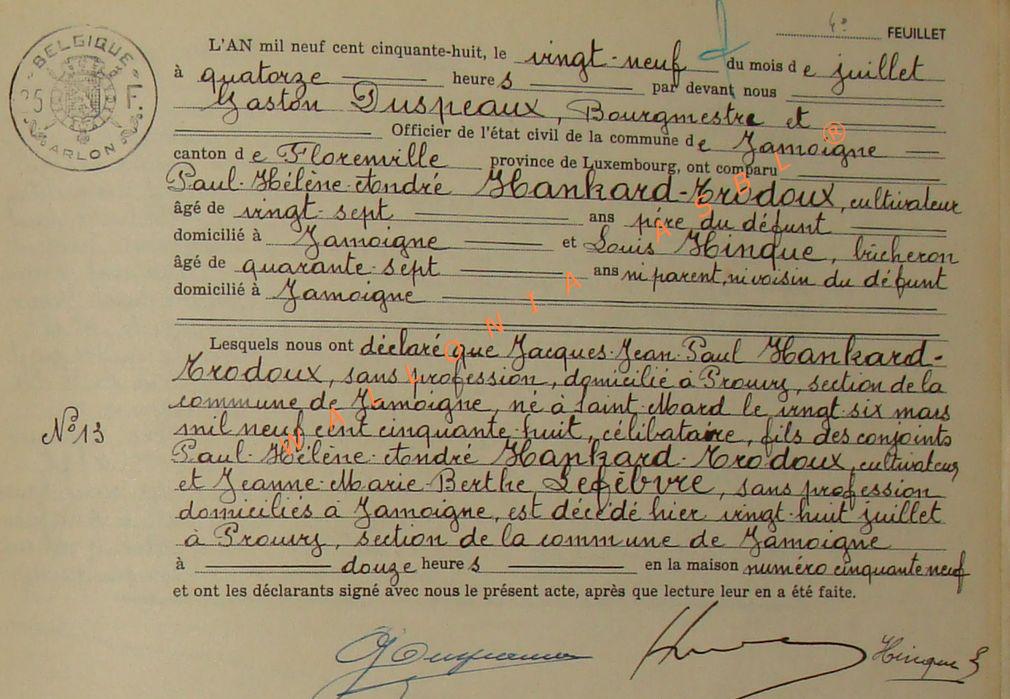 4e FEUILLET
BELGIQUE
25 F.
ARLON
L'AN mil neuf cent cinquante-huit, le vingt-neuf du mois de juillet
à quatorze heures par devant nous
Gaston Duspeaux, Bourgmestre et
Officier de l'état civil de la commune de Jamoigne
canton de Florenville province de Luxembourg, ont comparu
Paul-Hélène-André Hankard-Trodoux, cultivateur
âgé de vingt-sept ans père du défunt
domicilié à Jamoigne et Louis Hinque, bûcheron
âgé de quarante-sept ans ni parent, ni voisin du défunt
domicilié à Jamoigne
Lesquels nous ont déclaré que Jacques-Jean-Paul Hankard-
Trodoux, sans profession, domicilié à Prouvy, section de la
commune de Jamoigne, né à Saint-Mard le vingt-six mars
N° 13
mil neuf cent cinquante-huit, célibataire, fils des conjoints
Paul-Hélène-André Hankard-Trodoux, cultivateur,
et Jeanne-Marie-Berthe Lefèbvre, sans profession
domiciliés à Jamoigne, est décédé hier vingt-huit juillet
à Prouvy, section de la commune de Jamoigne
à douze heures en la maison numéro cinquante neuf
et ont les déclarants signé avec nous le présent acte, après que lecture leur en a été faite.
Hinque L
WALLONIA ASBL ®